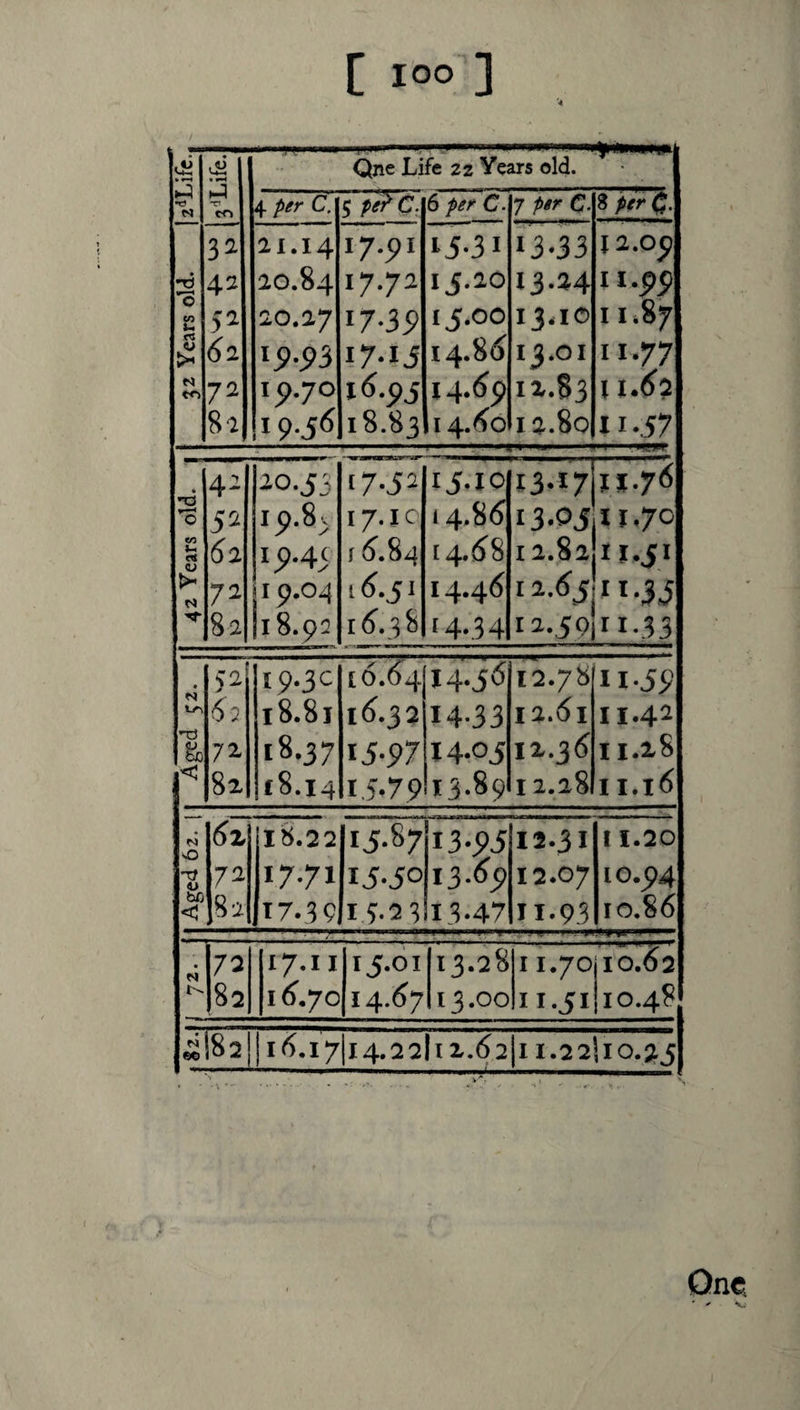 [ 100 ]
2d Life. 3d Life. One Life 22 Years old.
4 per C. 5 per C. 6 per C. 7 per C. 8 per C.
32 Years old.
32 21.14 17.91 15.31 13.33 12.09
42 20.84 17.72 15.20 13.24 11.99
52 20.27 17.39 15.00 13.10 11.87
62 19.93 17.15 14.86 13.01 11.77
72 19.70 16.95 14.69 12.83 11.62
82 19.56 18.83 14.60 12.80 11.57
42 Years old.
42 20.53 17.52 15.10 13.17 11.76
52 19.85 17.10 14.86 13.05 11.70
62 19.45 16.84 14.68 12.82 11.51
72 19.04 16.51 14.46 12.65 11.35
82 18.92 16.38 14.34 12.59 11.33
Aged 52.
52 19.30 16.64 14.56 12.78 11.59
62 18.81 16.32 14.33 12.61 11.42
72 18.37 15.97 14.05 12.36 11.28
82 18.14 15.79 13.89 12.28 11.16
Aged 62.
62 18.22 15.87 13.95 12.31 11.20
72 17.71 15.50 13.69 12.07 10.94
82 17.39 15.23 13.47 11.93 10.86
72.
72 17.11 15.01 13.28 11.70 10.62
82 16.70 14.67 13.00 11.51 10.48
82. 82 16.17 14.22 12.62 11.22 10.25
One